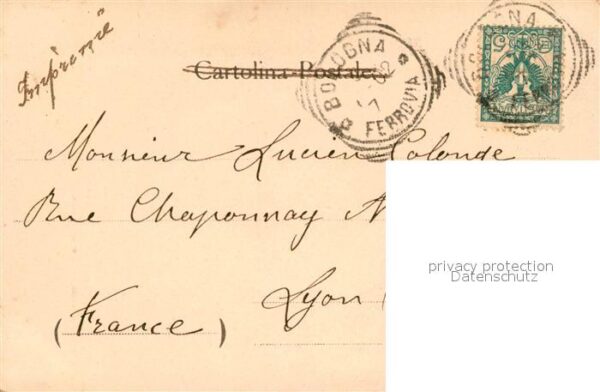 Imprimé
Cartolina Postale
BOLOGNA
FERROVIA
Monsieur Lucien Colonde
Rue Chaponnay N
Lyon
(France)
privacy protection
Datenschutz